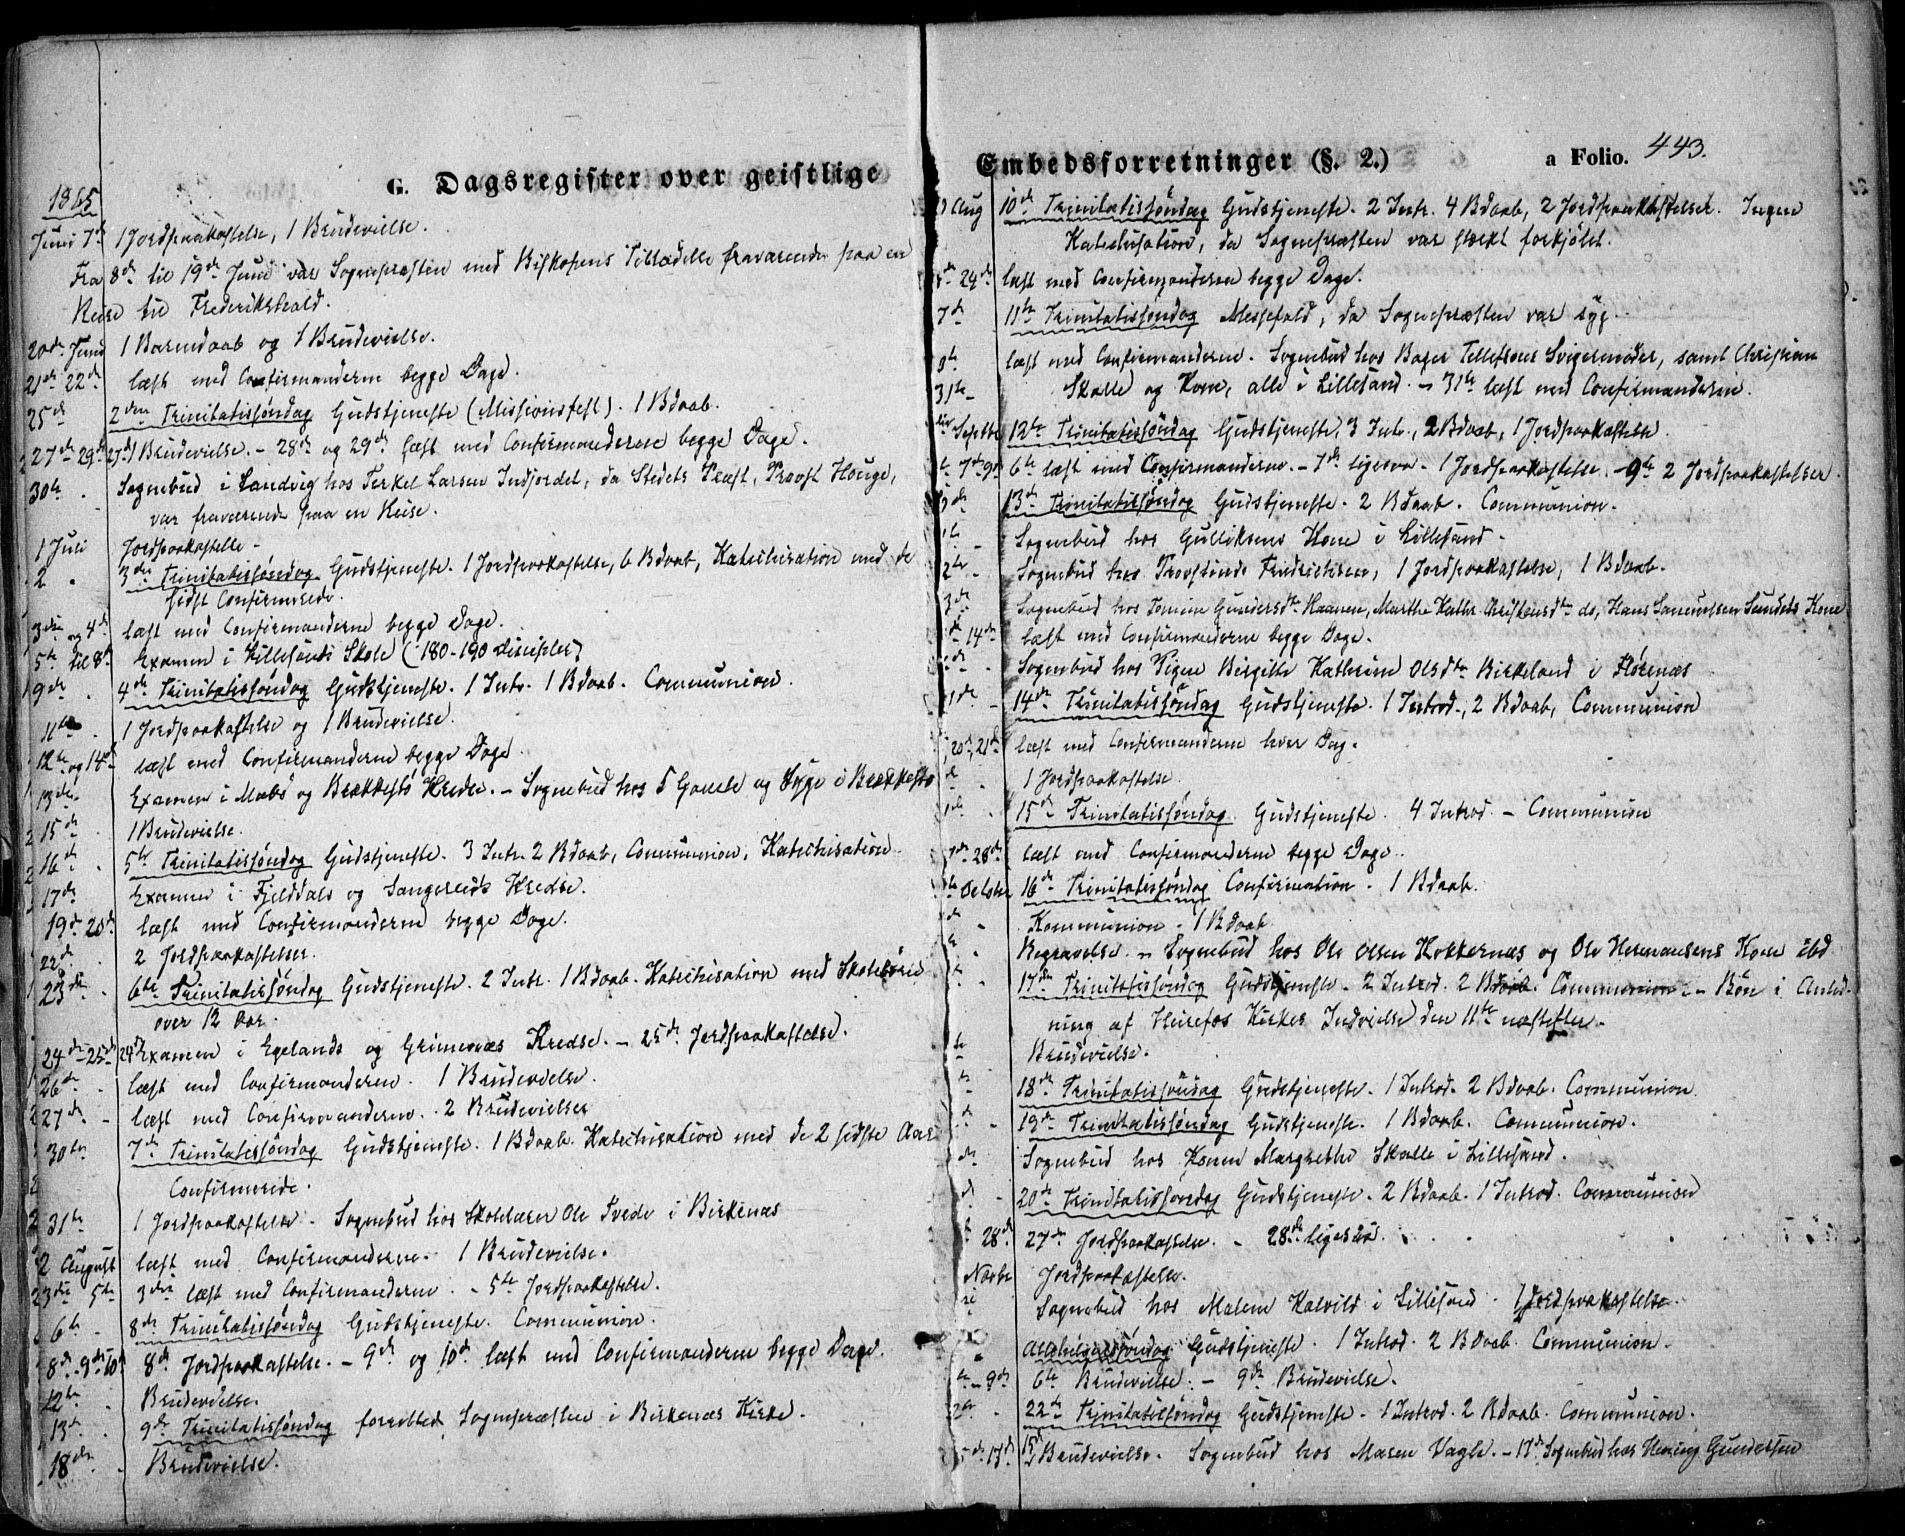 G. Dagsregister over geistlige
1865
Juni 7de 1 Jordpaakastelse, 1 Brudevielse.
Fra 8de til 19de Juni var Sognepræsten med Biskopens Tilladelse fraværende paa en
Reise til Frederikshald.
20de Juni 1 Barnedaab og 1 Brudevielse.
21de 22de læst med Confirmanderne begge Dage.
25de 2den Trinitatissøndag Gudstjeneste (Missionsfest). 1 Bdaab.
27de 29de 27de 1 Brudevielse. - 28de og 29de læst med Confirmanderne begge Dage.
30te Sognebud i Landvig hos Terkel Larsen Indfjordet, da Stedets Præst, Provst Houge,
var fraværende paa en Reise.
1 Juli Jordpaakastelse -
2 3die Trinitatissøndag Gudstjeneste. 1 Jordpaakastelse, 6 Bdaab, Katechisation med de
sidst Confirmerede.
3die og 4de læst med Confirmanderne begge Dage.
5te til 8de Examen i Lillesands Skole (180-190 Disciple)
9de 4de Trinitatissøndag Gudstjeneste. 1 Intr. 1 Bdaab. Communion.
11te 1 Jordpaakastelse og 1 Brudevielse.
12te og 14de læst med Confirmanderne begge Dage.
13de Examen i Mæbø og Brækkestø Kredse. - Sognebud hos 5 Gamle og Syge i Brækkestø
15de 1 Brudevielse.
16de 5te Trinitatissøndag Gudstjeneste. 3 Intr. 2 Bdaab, Communion, Katechisation.
17de Examen i Fjelddals og Sangereids Kredse.
19de 20de læst med Confirmanderne begge Dage.
22de 2 Jordpaakastelser.
23de 6te Trinitatissøndag Gudstjeneste. 2 Intr. 1 Bdaab. Katechisation med Skolebørn
over 12 Aar.
24de - 25de 24de Examen i Egelands og Grimenæs Kredse. - 25de Jordpaakastelse.
26de læst med Confirmanderne. 1 Brudevielse.
27de læst med Confirmanderne. 2 Brudevielser
30te 7de Trinitatissøndag Gudstjeneste. 1 Bdaab. Katechisation med de 2 sidste Aars
Confirmerede.
31te 1 Jordpaakastelse. Sognebud hos Skolelærer Ole Tveide i Birkenæs
2 August læst med Confirmanderne. 1 Brudevielse.
3die 5te 3die læst med Confirmanderne. - 5te Jordpaakastelse.
6te 8de Trinitatissøndag Gudstjeneste. Communion.
8de - 9de 10de 8de Jordpaakastelse. - 9de og 10de læst med Confirmanderne begge Dage.
12te Brudevielse.
13de 9de Trinitatissøndag forrettede Sognepræsten i Birkenæs Kirke.
18de Brudevielse.
Embedsforretninger (§. 2.) a Folio. 443.
Aug 10de Trinitatissøndag Gudstjeneste. 2 Intr. 4 Bdaab, 2 Jordpaakastelser. Ingen
Katechisation, da Sognepræsten var stærkt forkjølet.
24de læst med Confirmanderne begge Dage.
7de 11te Trinitatissøndag Messefald, da Sognepræsten var syg.
læst med Confirmanderne. Sognebud hos Bager Tellefsens Svigermoder, samt Christian
31te Skalle og Kone, alle i Lillesand. - 31te læst med Confirmanderne.
Septbr 12te Trinitatissøndag Gudstjeneste, 3 Intr., 2 Bdaab, 1 Jordpaakastelse
7de 9de 6te læst med Confirmanderne. - 7de ligesaa - 1 Jordpaakastelse. - 9de 2 Jordpaakastelser.
13de Trinitatissøndag Gudstjeneste. 2 Bdaab. Communion.
Sognebud hos Gulliksens Kone i Lillesand.
Sognebud hos Fredrichsen, 1 Jordpaakastelse, 1 Bdaab.
Sognebud hos Tomine Gundersdtr Haanen, Marthe Kathr. Christensdtr do, Hans Samuelsen Sundets Kone
14de læst med Confirmanderne begge Dage.
Sognebud hos Pigen Birgitte Kathrine Olsdtr Birkeland i Florenæs
14de Trinitatissøndag Gudstjeneste. 1 Introd., 2 Bdaab, Communion
20de, 21de læst med Confirmanderne hver Dag.
1 Jordpaakastelse
15de Trinitatissøndag Gudstjeneste. 4 Introd. - Communion
28de læst med Confirmanderne begge Dage.
Octobr 16de Trinitatissøndag Confirmation. 1 Bdaab.
Kommunion. 1 Bdaab
Begravelse. - Sognebud hos Ole Olsen Kokkernæs og Ole Hermansens Kone ibd
17de Trinitatissøndag Gudstjeneste. 2 Introd. 2 Bdaab. Communion - Bøn i Anled-
ning af Herefos Kirkes Indvielse den 11te næstefter.
Brudevielse.
18de Trinitatissøndag Gudstjeneste. 1 Introd. 2 Bdaab. Communion
19de Trinitatissøndag Gudstjeneste. 1 Bdaab. Communion.
Sognebud hos Konen Margrethe Skalle i Lillesand.
20de Trinitatissøndag Gudstjeneste. 2 Bdaab. 1 Introd. Communion
28de 27de Jordpaakastelse. - 28de ligesaa.
Novbr Jordpaakastelse.
Sognebud hos Malene Kalvild i Lillesand. 1 Jordpaakastelse.
Allehelgenssøndag Gudstjeneste. 1 Introd. 2 Bdaab. Communion.
9de 6te Brudevielse. - 9de Brudevielse.
22de Trinitatissøndag Gudstjeneste. 1 Introd. 2 Bdaab. Communion.
17de 15de Brudevielse. Sognebud hos Maren Vagle. - 17de Sognebud hos Gundersen